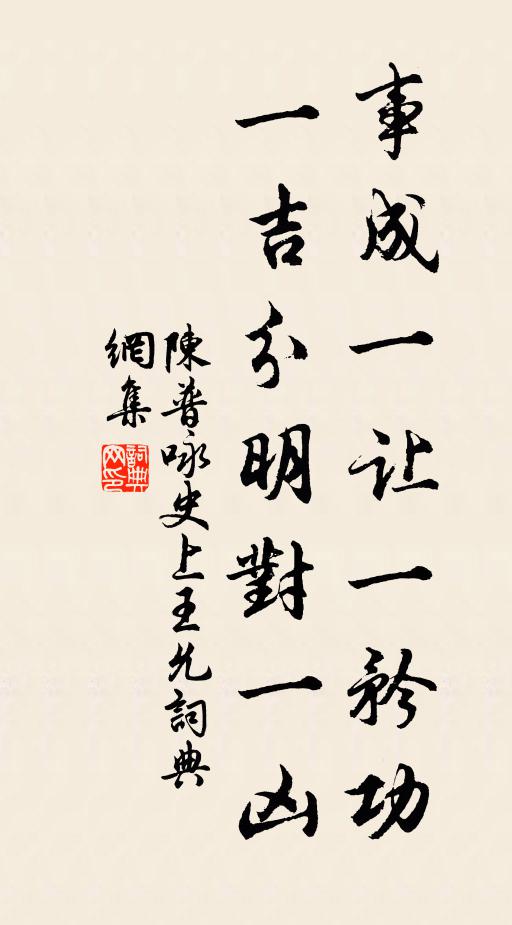 事成一让一矜功
一吉分明對一凶
陳普咏史上王允詞典
網集
詞典
网印